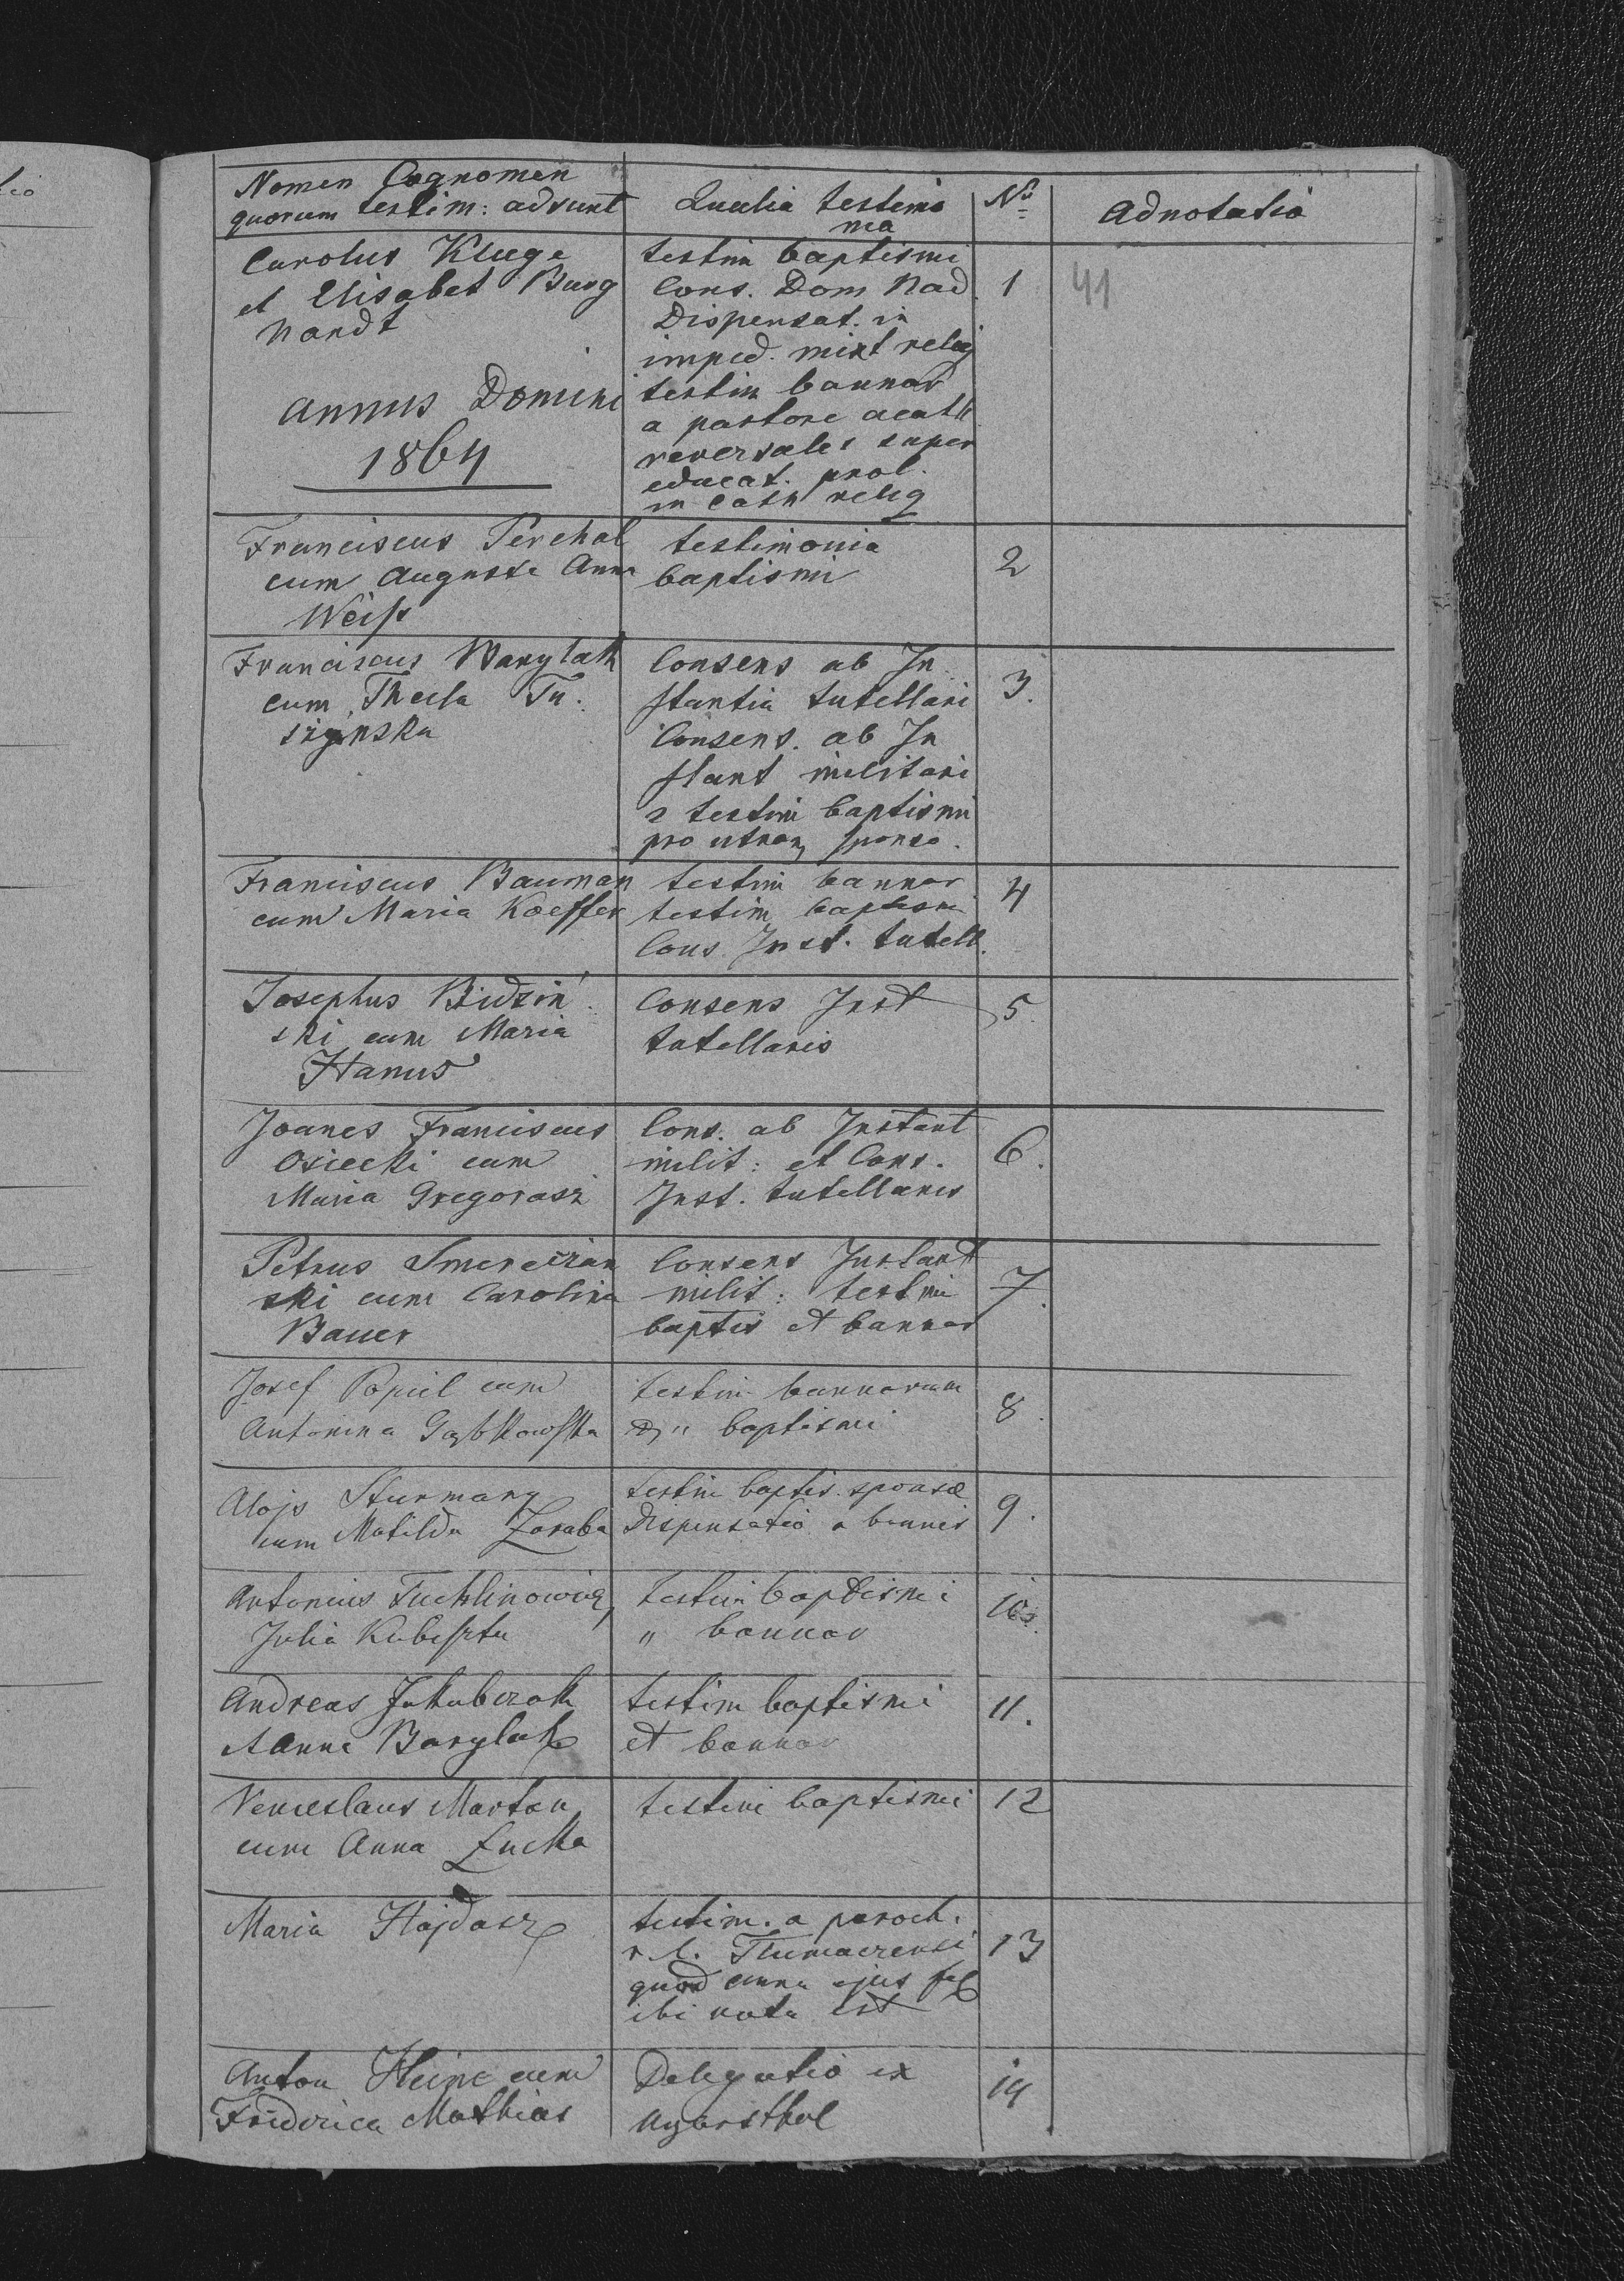 Nomen Cognomen
quorum testim: adsunt
Qualia testimo
nia
No
Adnotatio
Carolus Kluge
et Elisabet Burg
hardt
Annus Domini
1864
testim baptismi
Cons. Dom Nad.
Dispensat. in
imped. mixt relig
testim bannor
a pastore acath
reversales super
educat. prol.
in Cath relig
1
41
Franciscus Perchal
cum Augusta Anna
Weiss
testimonia
baptismi
2
Franciscus Warylak
cum Thecla Tu.
szynska
Consens ab In
stantia tutellari
Consens. ab In
stant militari
2 testim baptismi
pro utroq sponso.
3.
Franciscus Bauman
cum Maria Koeffer
testim bannor
testim baptismi
Cons Inst. tutell.
4
Josephus Bidziń
ski cum Maria
Hanus
Consens Inst
tutellaris
5.
Joanes Franciscus
Osiecki cum
Maria Gregorasz
Cons. ab Instant
milit: et Cons.
Inst. tutellaris
6.
Petrus Smereczan
ski cum Carolina
Bauer
Consens Instant
milit: testim
baptis et bannor
7.
Josef Popiel cum
Antonina Gąbkowska
testim bannorum
" baptismi
8.
Alojs Sturmang
cum Matilda Zaraba
testim baptis. sponsæ
Dispensatio a bannis
9.
Antonius Tuchlinowicz
Julia Kubeszta
testim baptismi
" bannor
10.
Andreas Jakubczak
et Anna Barylak
testim baptismi
et bannor
11.
Venceslaus Marton
cum Anna Łucka
testim baptismi
12
Maria Hajdasz
testim. a paroch.
r. l. Tłumaczensi
quod Anna ejus fil
ibi nata est
13
Anton Heine cum
Friderica Mathias
Delegatio ex
Ugarsthal
14